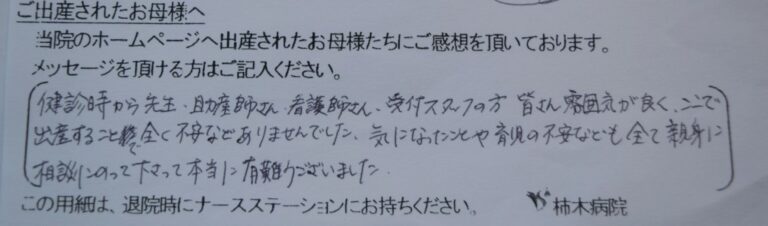 ご出産されたお母様へ
当院のホームページへ出産されたお母様たちにご感想を頂いております。
メッセージを頂ける方はご記入ください。
健診時から先生、助産師さん、看護師さん、受付スタッフの方 皆さん雰囲気が良く、ここで
出産すること全く不安などありませんでした。気になったことや育児の不安なども全て親身に
相談にのって下さって本当に有難うございました。
この用紙は、退院時にナースステーションにお持ちください。 柿木病院